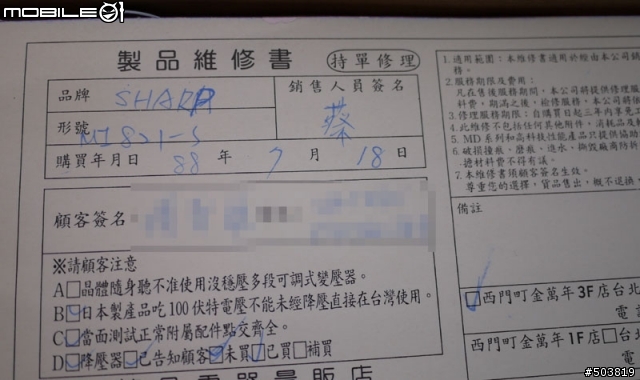 MOBILE01
製品維修書 持單修理
品牌 SHARP
銷售人員簽名
蔡
形號 MT831-S
購買年月日 88 年 7 月 18 日
顧客簽名
※請顧客注意
A□晶體隨身聽不准使用沒穩壓多段可調式變壓器。
B□日本製產品吃100伏特電壓不能未經降壓直接在台灣使用。
C□當面測試正常附屬配件點交齊全。
D□降壓器□已告知顧客□未買□已買□補買
1.適用範圍:本維修書適用於經由本公司銷
務。
2.服務期限及費用:
凡在售後服務期間,本公司將提供修理
料費。期滿之後,檢修服務,本公司將
3.修理服務期限:自購買日起三年內享免
4.此維修不包括任何其他附件、消耗品及
5.MD系列和高科技性能產品只提供
6.破損撞痕、磨痕、進水、撕毀廠商防拆
擔材料費不得有議。
7.本維修書須顧客簽名生效。
尊重您的選擇,貨品售出,概不退換,
備註
□西門町金萬年3F店台北
電
西門町金萬年1F□店台北
電
#503819